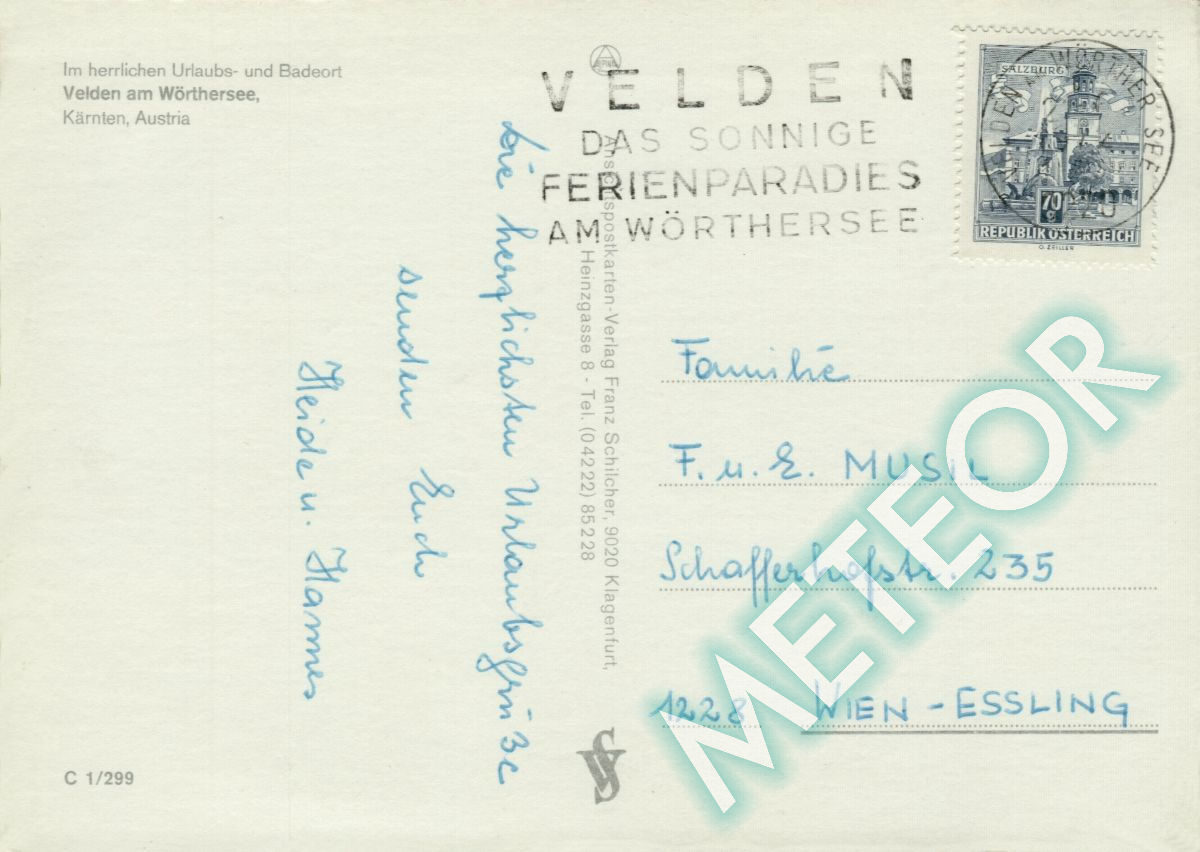 Im herrlichen Urlaubs- und Badeort
Velden am Wörthersee,
Kärnten, Austria
VELDEN
DAS SONNIGE
FERIENPARADIES
AM WÖRTHERSEE
SALZBURG
70
g
REPUBLIK ÖSTERREICH
O. ZEILLER
WÖRTHER SEE
Die herzlichsten Urlaubsgrüße
senden Euch
Heide u. Hannes
Ansichtspostkarten-Verlag Franz Schilcher, 9020 Klagenfurt,
Heinzgasse 8 - Tel. (04222) 85228
Familie
F. u. E. MUSIL
Schafferhofstr. 235
1228 WIEN-ESSLING
METEOR
C 1/299